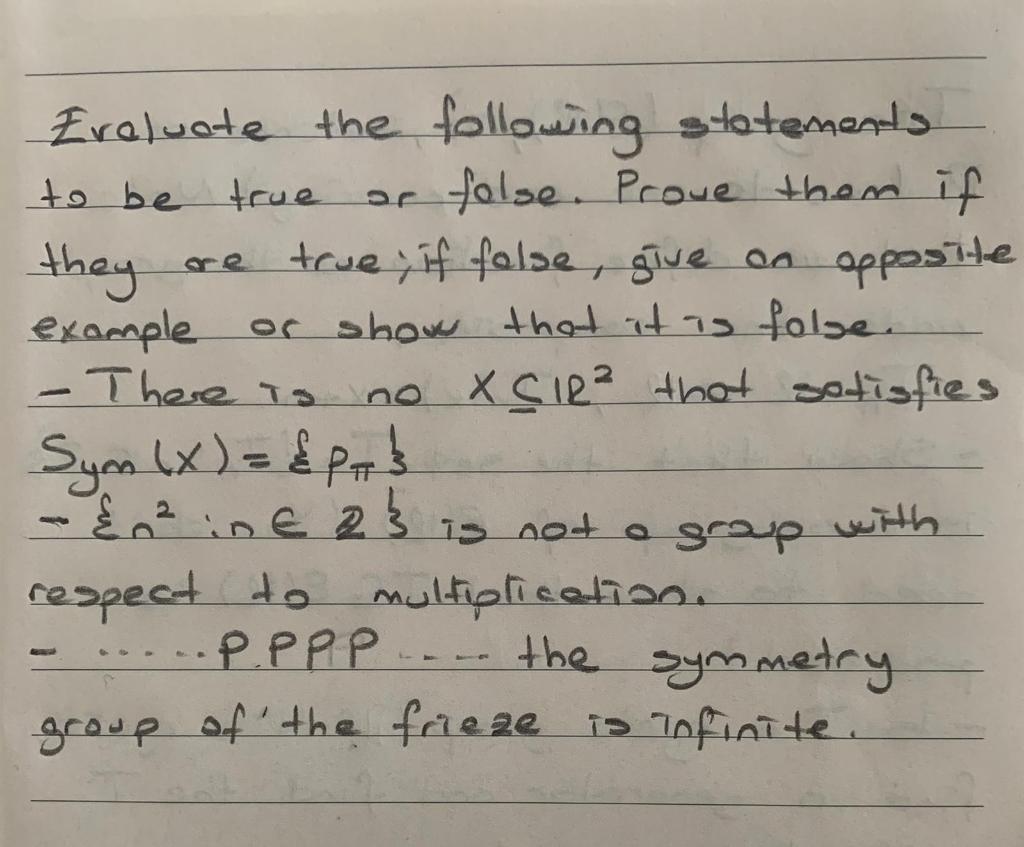 Evaluate the following statements
to be true or false. Prove them if
they are true; if false, give an opposite
example or show that it is false.
- There is no X ⊆ ℝ² that satisfies
Sym (X) = { ρπ }
- {n² : n ∈ ℤ} is not a group with
respect to multiplication.
- ...... P.PPP .... the symmetry
group of the frieze is infinite.